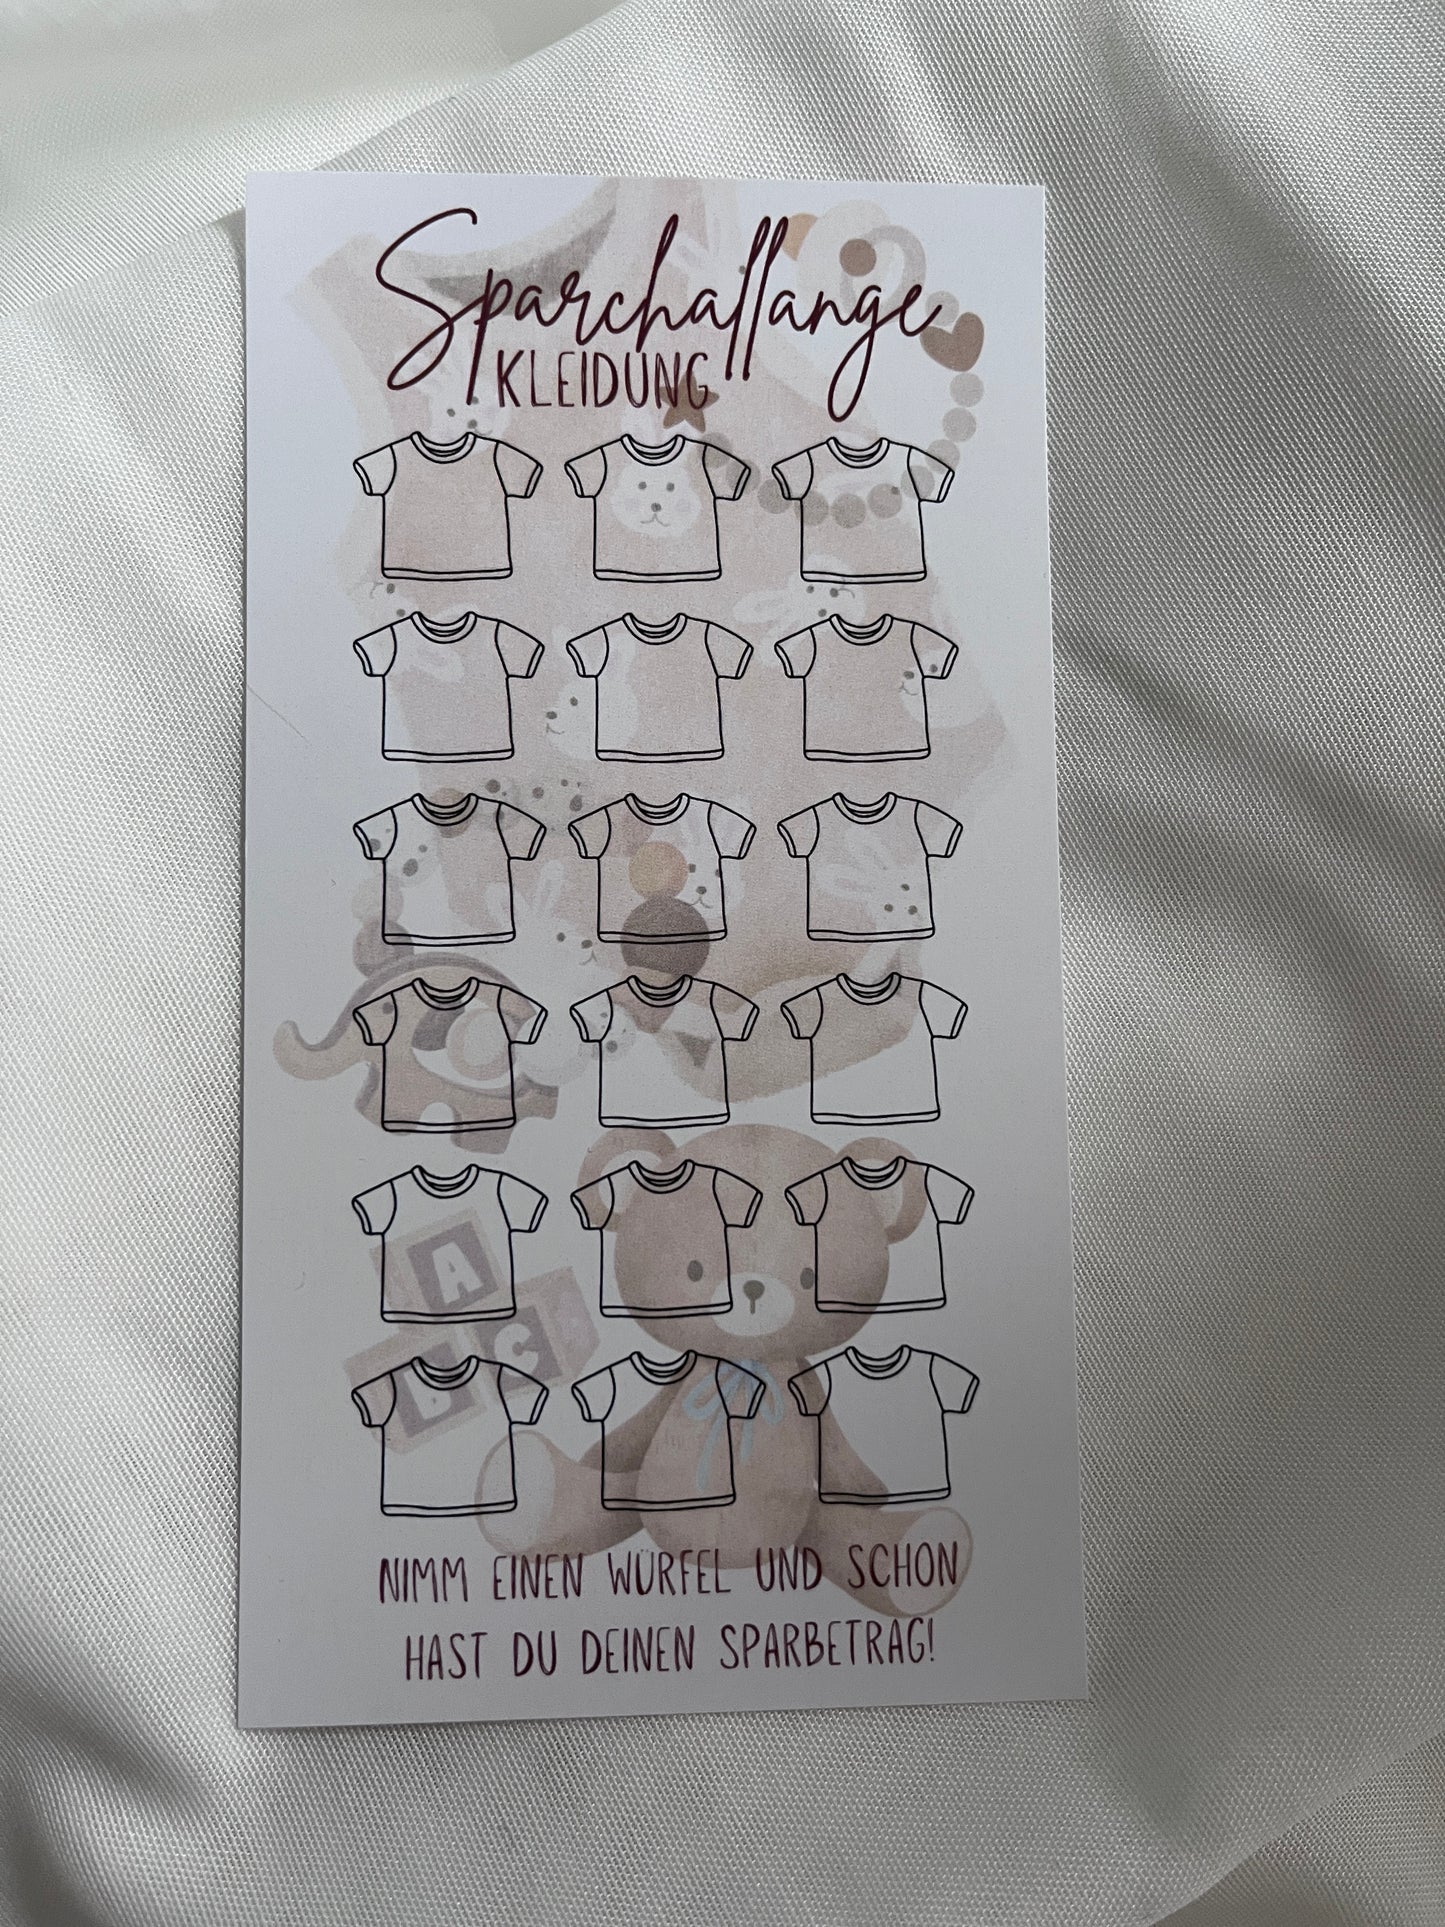 Sparchallange
KLEIDUNG
A
B C
NIMM EINEN WÜRFEL UND SCHON
HAST DU DEINEN SPARBETRAG!